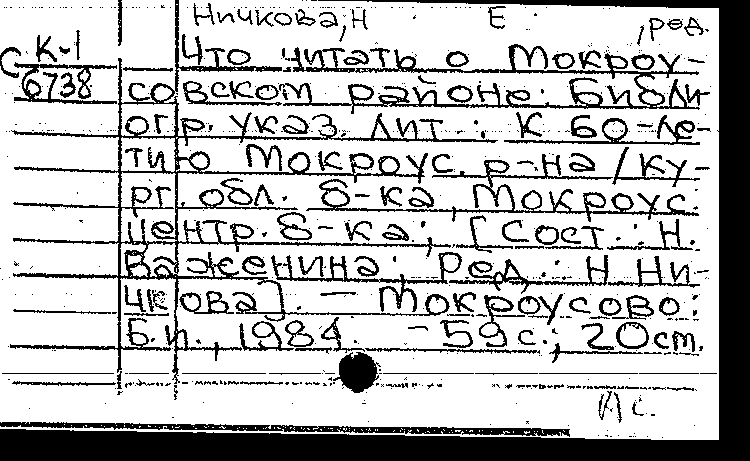 Ничкова, Н Е , ред.
С К-1 Что читать о Мокроу-
6738 совском районе: Библи-
огр. указ. лит.: К 60-ле-
тию Мокроус. р-на / Ку-
рг. обл. б-ка, Мокроус.
центр. б-ка; [Сост.: Н.
Важенина; Ред.: Н Ни-
чкова]. — Мокроусово:
Б.и., 1984. - 59 с.; 20 см.